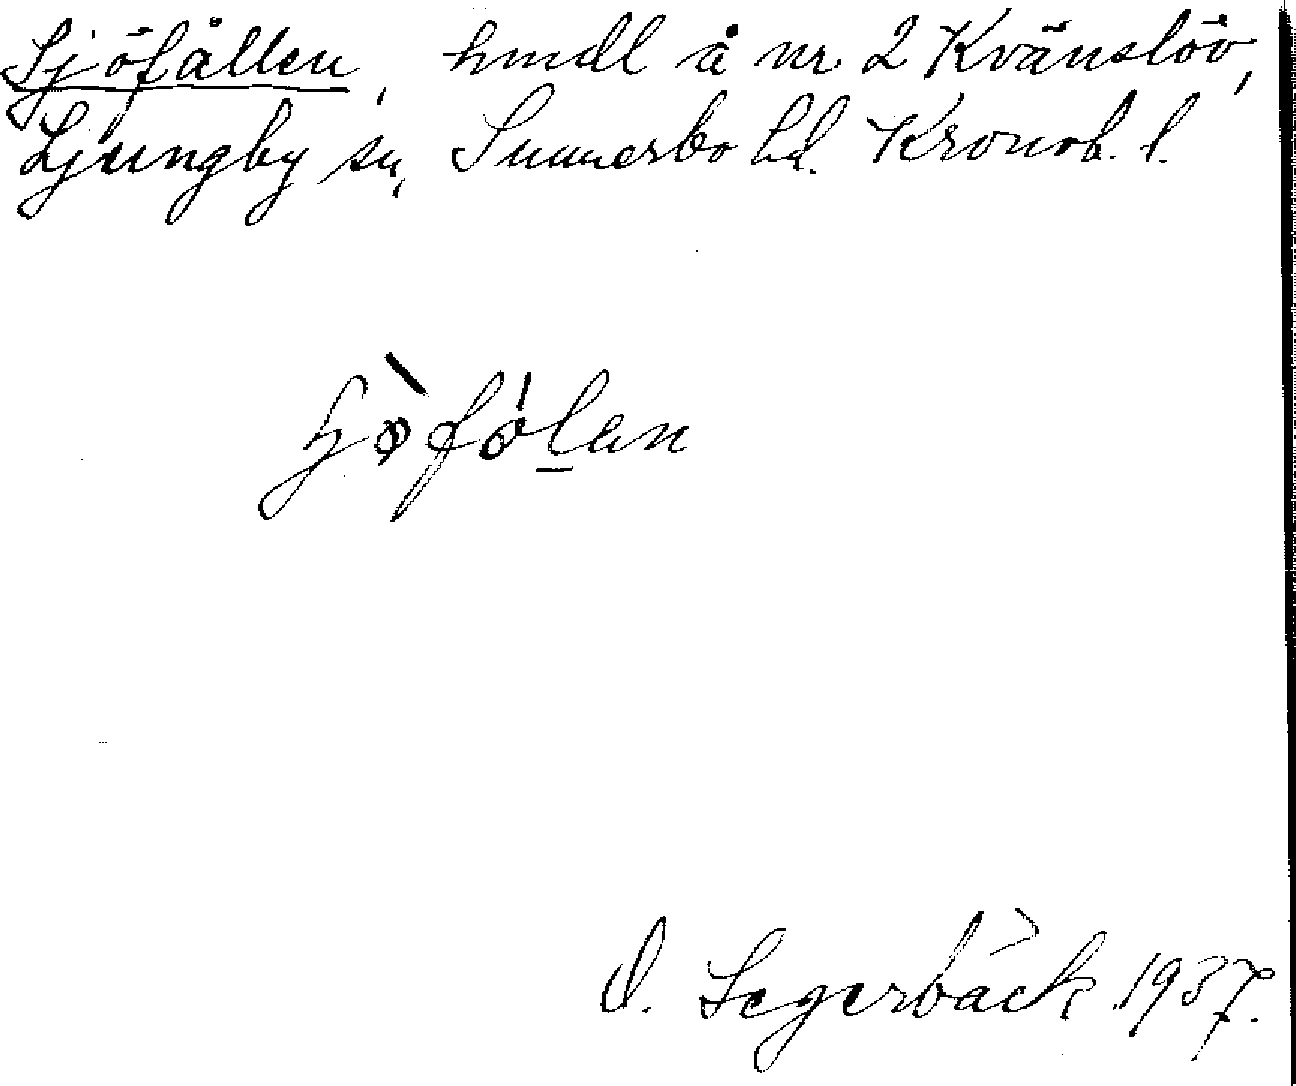 Sjöfållen, hmdl å nr. 2 Kvänslöv,
Ljungby sn, Sunnerbo hd. Kronob. l.
O. Segerbäck 1937.